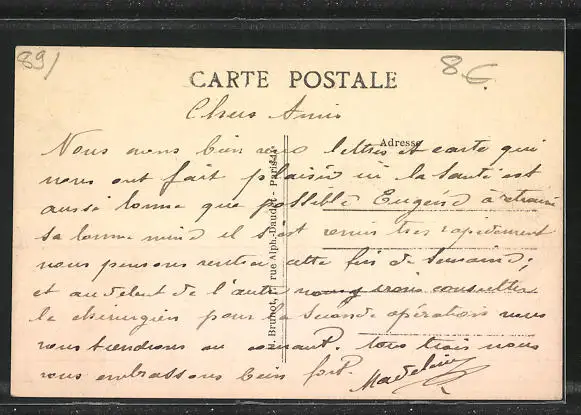 89/
8 6
CARTE POSTALE
Chers Amis
Adresse
Nous avons bien reçu lettres et carte qui
nous ont fait plaisir ici la santé est
aussi bonne que possible Eugénie à retrouvé
sa bonne mine il s'est remis très rapidement
nous pensons rentrer cette fin de semaine;
et au début de l'autre nous irons consulter
le chirurgien pour la seconde opération nous
vous tiendrons au courant. tous trois nous
vous embrassons bien fort. Madeleine
rue Alph.-Daudet - Paris